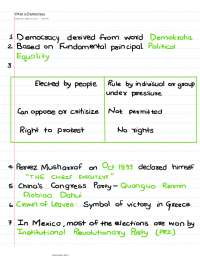 What is Democracy
1 Democracy derived from word Demokratia
2 Based on Fundamental principal Political
Equality
3
Elected by people Rule by individual or group
under pressure
Can oppose or critisize Not permitted
Right to protest No rights
4 Pervez Musharraf on Oct 1999 declared himself
"THE CHIEF EXECUTIVE"
5 China's Congress Party - Quanguo Renmin
Daibiao Dahui
6 Crown of Leaves: Symbol of victory in Greece
7 In Mexico, most of the elections are won by
Institutional Revolutionary Party (PRI)